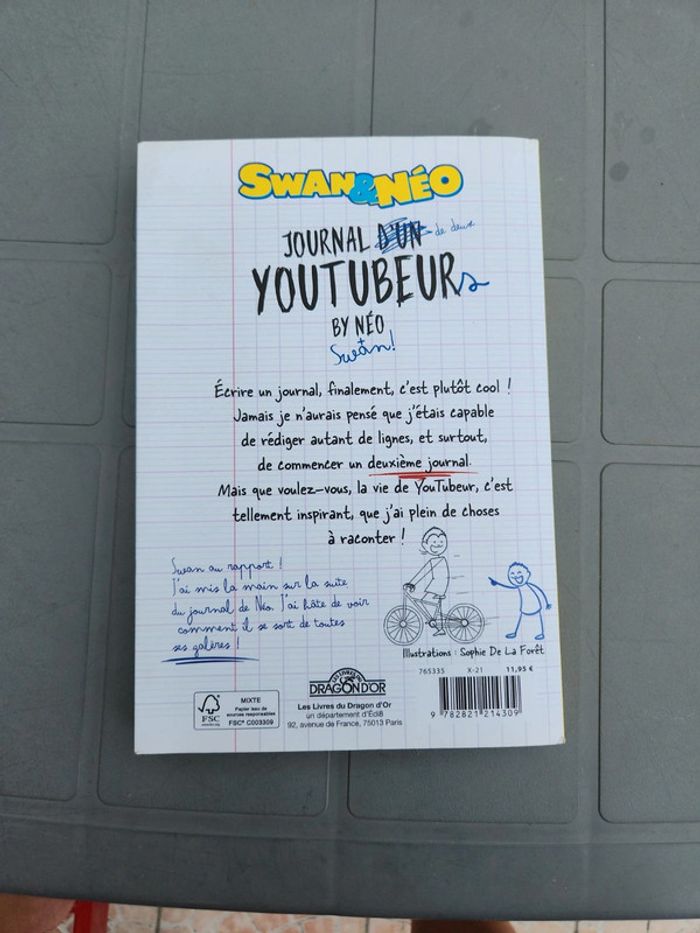 SWAN&NÉO
JOURNAL D'UN de deux
YOUTUBEURs
BY NÉO
+
Swan!
Écrire un journal, finalement, c'est plutôt cool !
Jamais je n'aurais pensé que j'étais capable
de rédiger autant de lignes, et surtout,
de commencer un deuxième journal.
Mais que voulez-vous, la vie de YouTubeur, c'est
tellement inspirant, que j'ai plein de choses
à raconter !
Swan au rapport !
J'ai mis la main sur la suite
du journal de Néo. J'ai hâte de voir
comment il se sort de toutes
ses galères !
Illustrations : Sophie De La Forêt
765335 X-21 11,95 €
9 782821 214309
FSC
www.fsc.org
MIXTE
Papier issu de
sources responsables
FSC® C003309
LES LIVRES DU
DRAGON D'OR
Les Livres du Dragon d'Or
un département d'Édi8
92, avenue de France, 75013 Paris